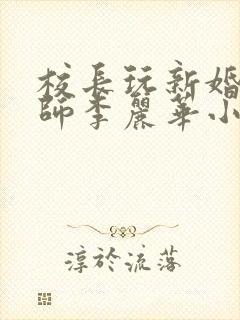 校長玩新婚
師李麗華小
淳於流落